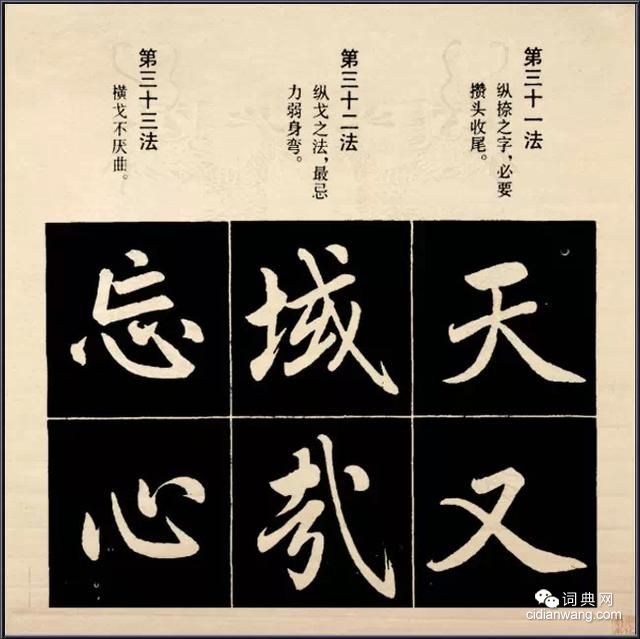 第三十一法
纵捺之字，必要
攒头收尾。
天
又
第三十二法
纵戈之法，最忌
力弱身弯。
域
哉
第三十三法
横戈不厌曲。
忘
心
词典网
cidianwang.com